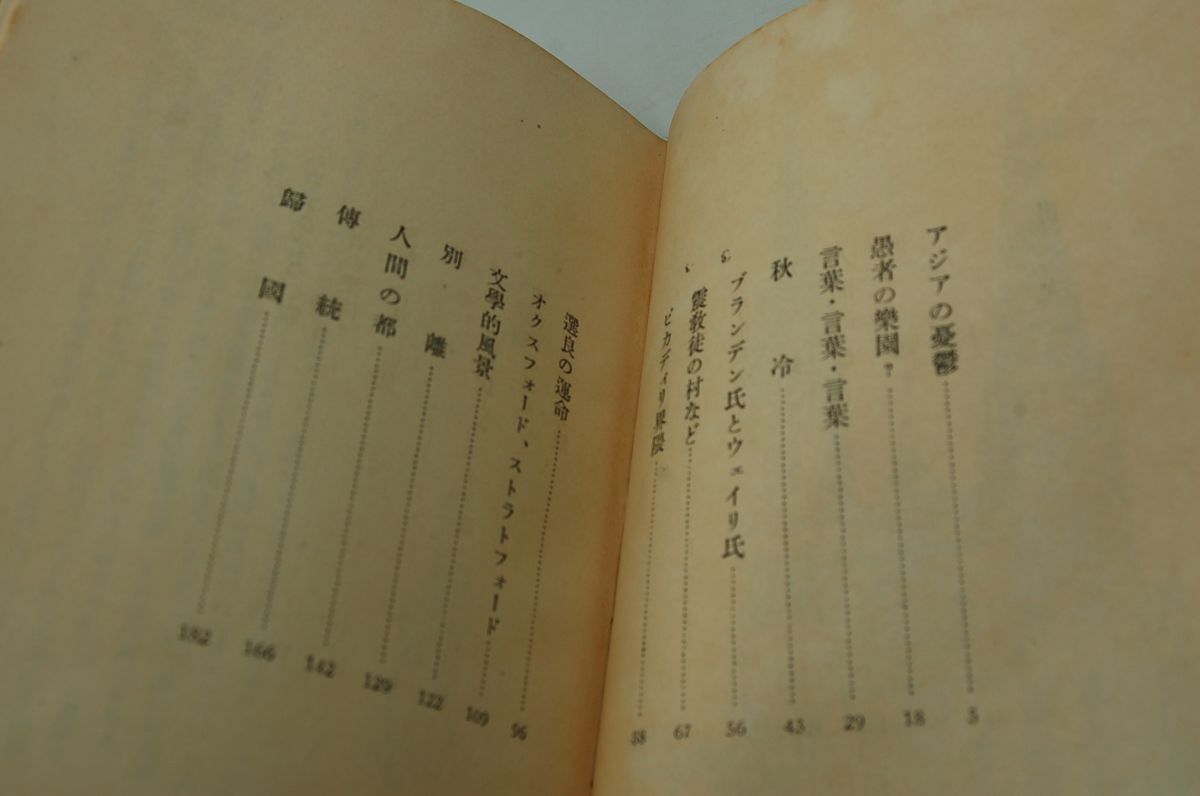 アジアの憂鬱
愚者の樂園? 18
言葉・言葉・言葉 29
秋冷 43
ブランデン氏とウェイリ氏 56
震教徒の村など 67
ピカディリ界隈
選良の運命 96
オクスフォード、ストラトフォード 109
文學的風景 122
別離 129
人間の都 142
傳統 166
歸國 192